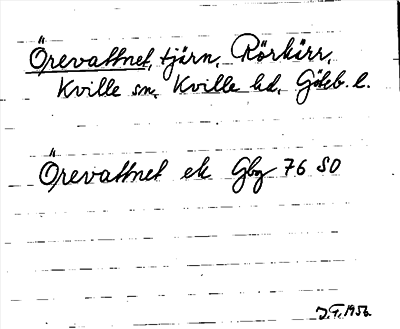 Örevattnet, tjärn, Rörkärr,
Kville sn, Kville hd, Göteb. l.
Örevattnet ek Gbg 76 SO
J.F. 1956.